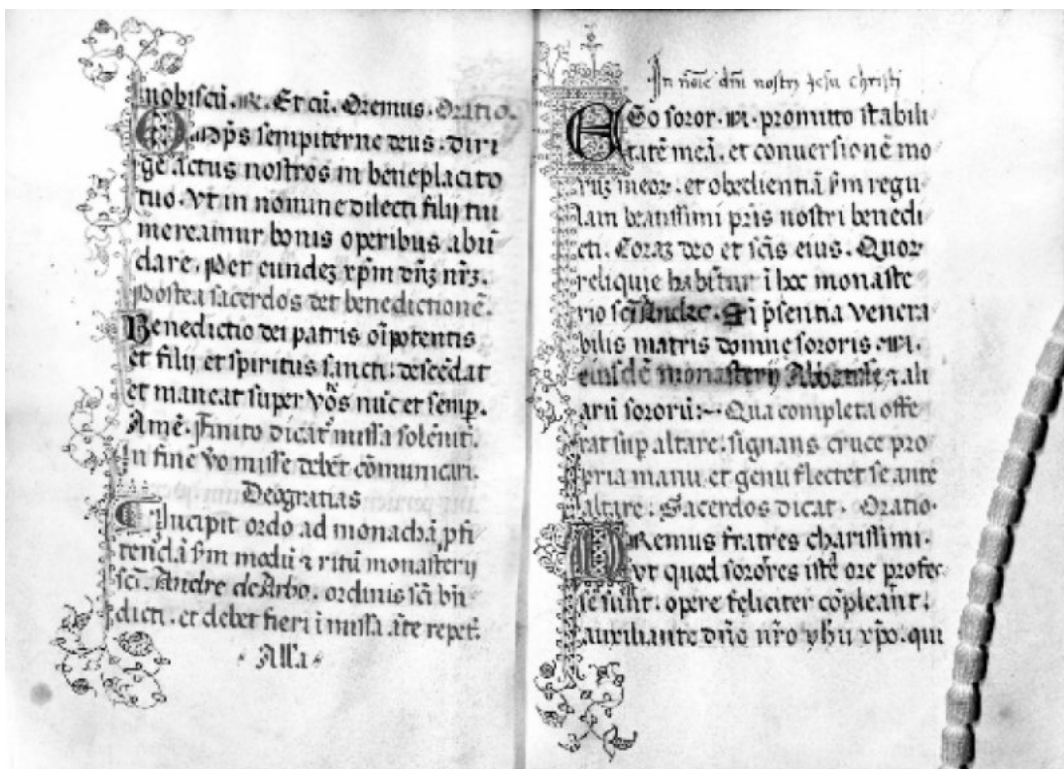 nobiscū. ℟. Et cū. Oremus. Oratio.
Omps sempiterne deus. diri
ge actus nostros in beneplacito
tuo. Vt in nomine dilecti filij tui
mereamur bonis operibus abū
dare. Per eundeʒ xp̄m dn̄ʒ nr̄ʒ.
Postea sacerdos det benedictionē.
Benedictio dei patris oīpotentis
et filij et spiritus sancti. descēdat
et maneat super vos nūc et semp.
Amē. Finito dicat missa solēnit.
In fine vo misse debet cōmunicari.
Deogratias
Incipit ordo ad monachā pfi
tendā s̄m modū ⁊ ritū monasterij
sc̄i. Andre de Arbo. ordinis sc̄i bn̄
dicti. et debet fieri ī missa āte repet.
Alla
In noīe dn̄i nostrj jesu christi
EGo soror. N. promitto stabili
tatē meā. et conuersionē mo
rūʒ meoꝝ. et obedientiā s̄m regu
lam beatissimi pr̄is nostri benedi
cti. Coraʒ deo et sc̄is eius. Quoꝝ
reliquie habētur ī hoc monaste
rio sc̄i Andree. ī p̄sentia venera
bilis matris domne sororis. N.
eiusdē monasterij Abbatisse, ⁊ ali
arū sororū:~ Qua completa offe
rat sup altare. signans cruce pro
pria manu. et genu flectet se ante
altare. Sacerdos dicat. Oratio.
ORemus fratres charissimi.
vt quod sorores iste ore profes
se sunt. opere feliciter cōpleant:
auxiliante dn̄o nr̄o yhu xp̄o. qui